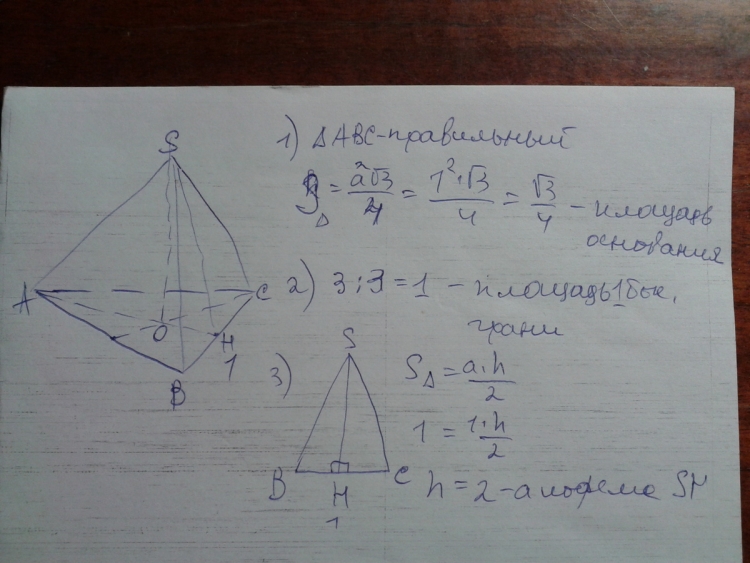 S
A
O
H
C
1
B
1) ΔABC-правильный
S△ = a²√3/4 = 1²·√3/4 = √3/4 - площадь
основания
2) 3:3=1 - площадь 1 бок.
грани
3)
S
B
H
C
1
S△ = a·h/2
1 = 1·h/2
h = 2 - апофема SH